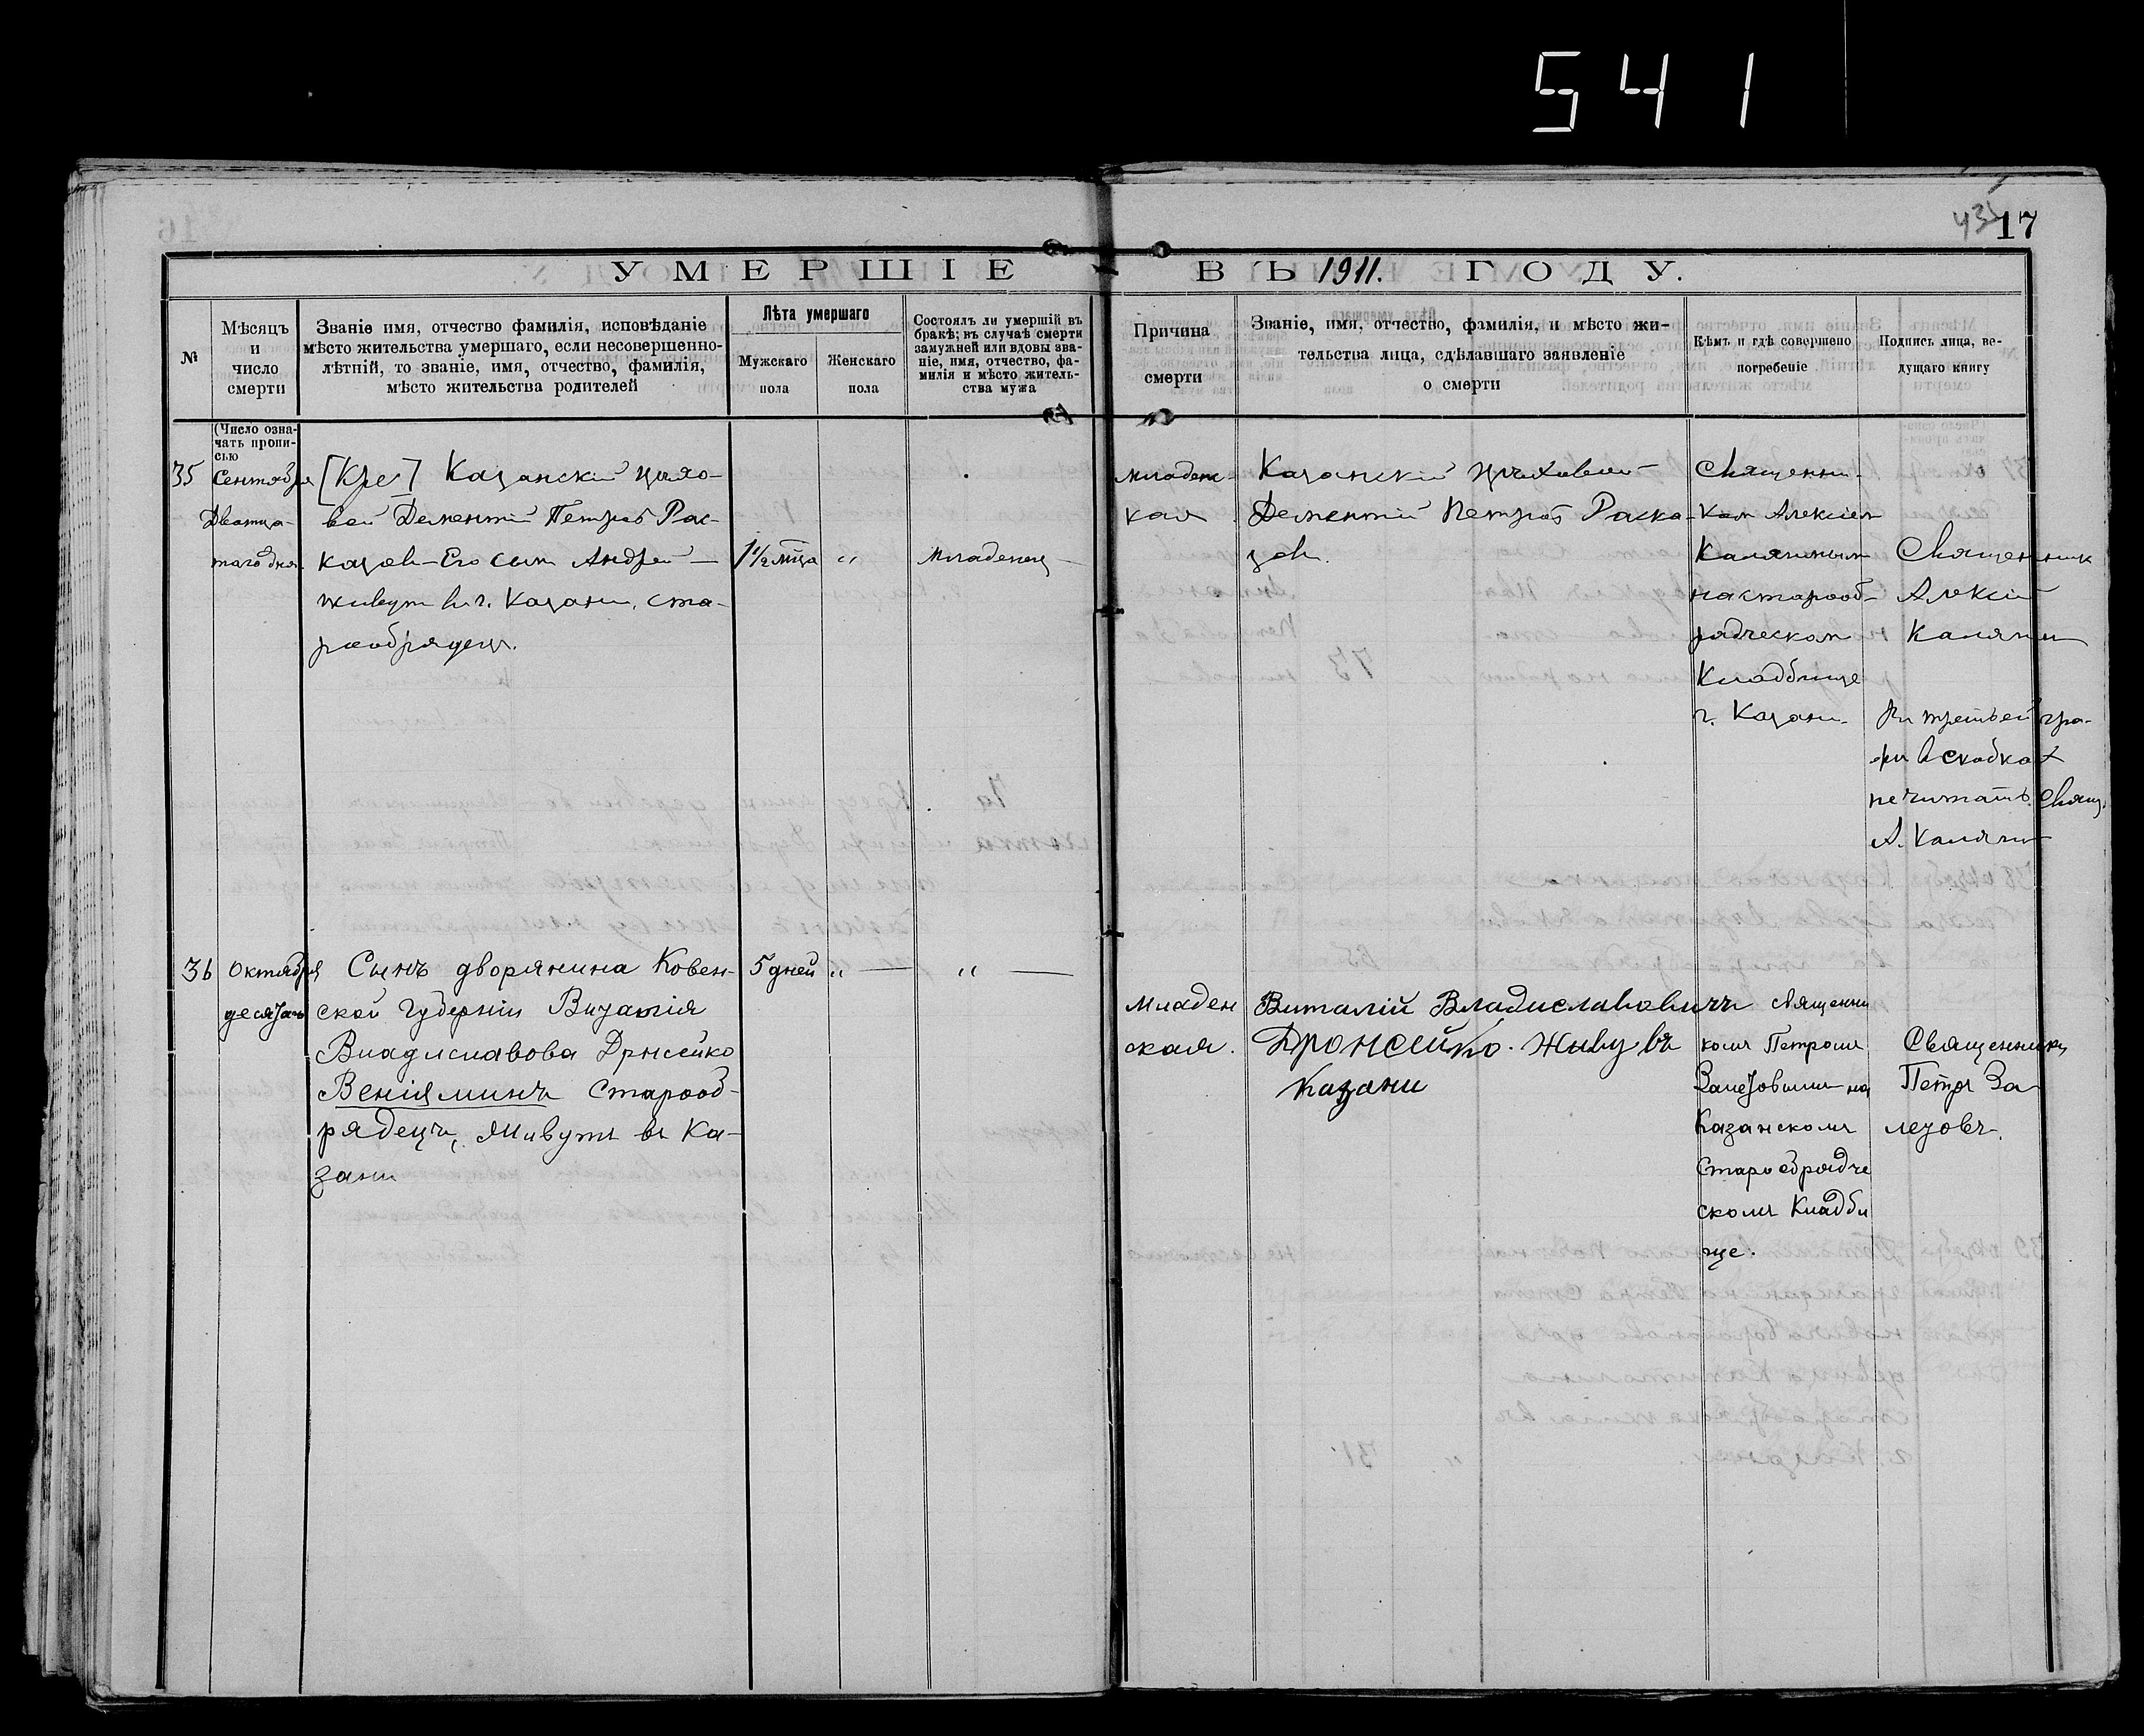 541
17
УМЕРШІЕ ВЪ 1911. ГОДУ.
№
Мѣсяцъ
и
число
смерти
Званіе имя, отчество фамилія, исповѣданіе
мѣсто жительства умершаго, если несовершенно-
лѣтній, то званіе, имя, отчество, фамилія,
мѣсто жительства родителей
Лѣта умершаго
Мужскаго
пола
Женскаго
пола
Состоялъ ли умершій въ
бракѣ; въ случаѣ смерти
замужней или вдовы зва-
ніе, имя, отчество, фа-
милія и мѣсто житель-
ства мужа
Причина
смерти
Званіе, имя, отчество, фамилія, и мѣсто жи-
тельства лица, сдѣлавшаго заявленіе
о смерти
Кѣмъ и гдѣ совершено
погребеніе
Подпись лица, ве-
дущаго книгу
(Число озна-
чать пропи-
сью
35
Сентября
Двотца-
таго дня
[Кре] Казанскій цехо-
вой Дементій Петров Рас-
казов-Его сын Андрей
живут в г. Казани, ста-
рообрядец.
1½ мца
"
Младенец
младен-
кая
Казанскій цеховой
Дементій Петров Раска-
зов.
Священни-
ком Алексием
Калягиным
на старооб-
рядческом
Кладбище
г. Казани.
Священник
Алексій
Калягин
В третьей гра-
фи в скобках
не читать. Свящ.
А. Калягин
36
Октября
десятаго
Сынъ дворянина Ковен-
ской губерніи Виталія
Владиславова Дрнсейко
Веніяминъ Старооб-
рядецъ, Живутъ въ Ка-
зани
5 дней
"
"
Младен
ская.
Виталій Владиславовичъ
Дронсейко. Живу въ
Казани
священни
комъ Петромъ
Залетовымъ на
Казанскомъ
Старообрядче
скомъ Кладби
ще.
Священникъ
Петръ За
летовъ.